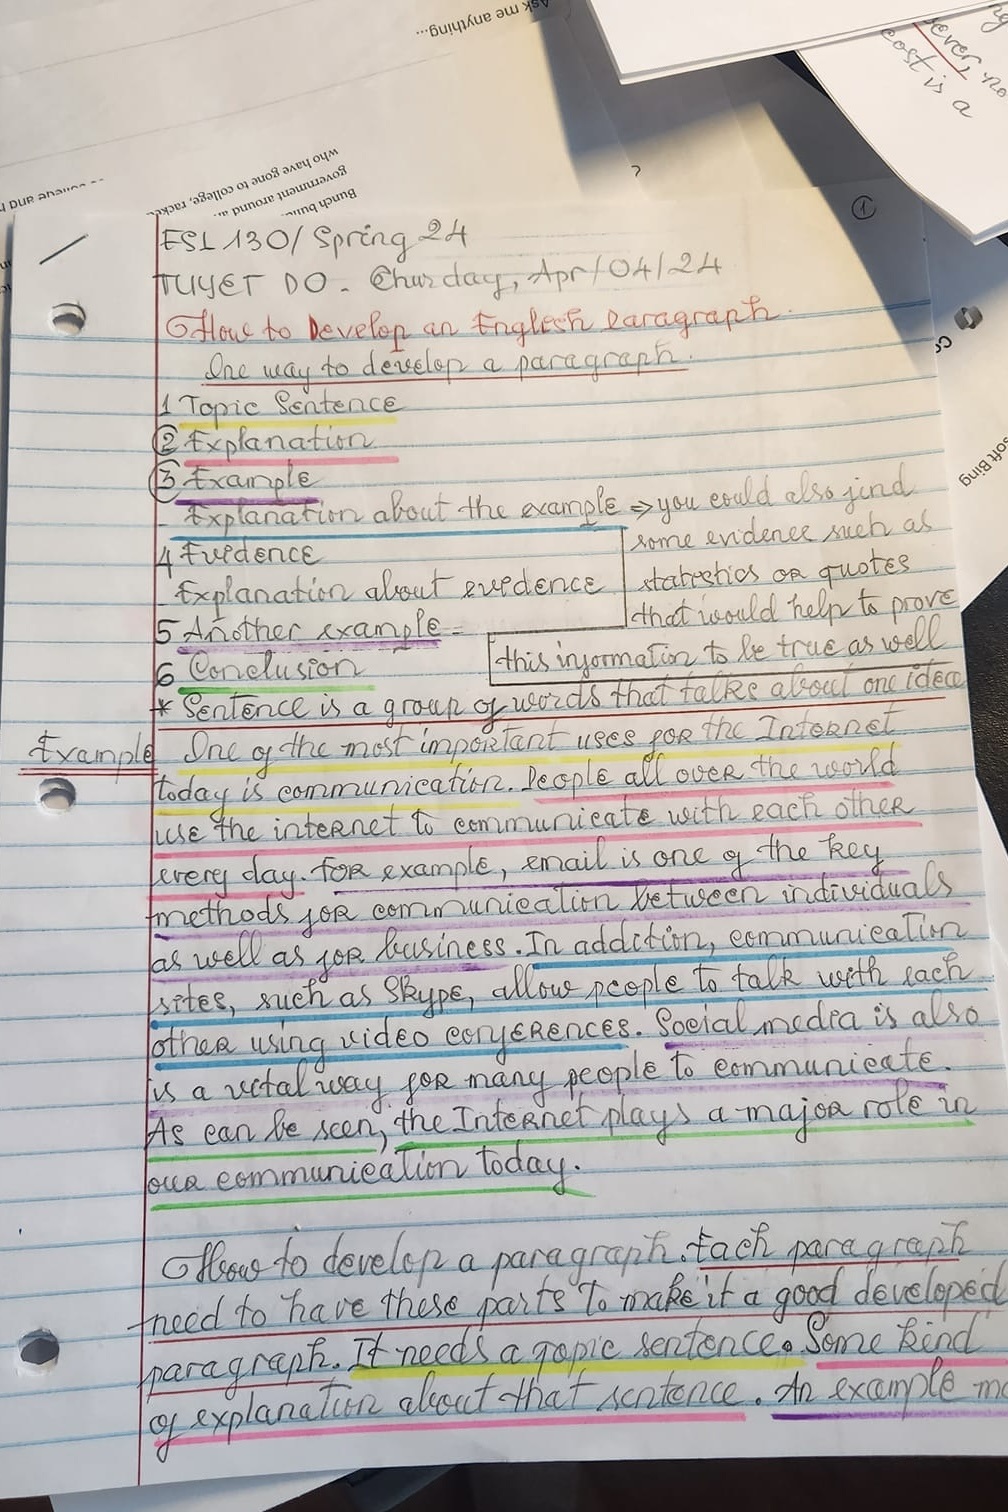 Ask me anything...
ever, no
cost is a
who have gone to college,
government around
Bunch
?
1
ESL 130/ Spring 24
TUYET DO - Thursday, Apr/04/24
How to Develop an English Paragraph.
One way to develop a paragraph.
1 Topic Sentence
2 Explanation
3 Example
- Explanation about the example ⇒ you could also find
some evidence such as
4 Evidence
statestics or quotes
- Explanation about evedence
that would help to prove
5 Another example -
this information to be true as well
6 Conclusion
* Sentence is a group of words that talks about one idea
Example One of the most important uses for the Internet
today is communication. People all over the world
use the internet to communicate with each other
every day. For example, email is one of the key
methods for communication between individuals
as well as for business. In addition, communication
sites, such as Skype, allow people to talk with each
other using video conferences. Social media is also
is a vital way for many people to communicate.
As can be seen, the Internet plays a major role in
our communication today.
How to develop a paragraph. Each paragraph
need to have these parts to make it a good developed
paragraph. It needs a topic sentence. Some kind
of explanation about that sentence. An example
soft Bing